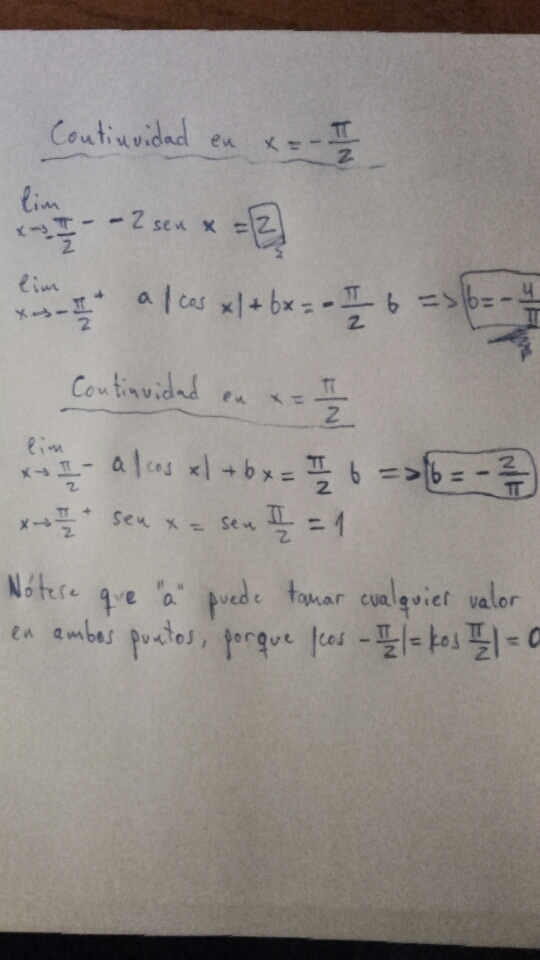 Continuidad en x = -π/2
lim x→-π/2⁻ -2 sen x = 2
lim x→-π/2⁺ a|cos x| + bx = -π/2 b => b = -4/π
Continuidad en x = π/2
lim x→π/2⁻ a|cos x| + bx = π/2 b => b = -2/π
x→π/2⁺ sen x = sen π/2 = 1
Nótese que "a" puede tomar cualquier valor
en ambos puntos, porque |cos -π/2| = |cos π/2| = 0